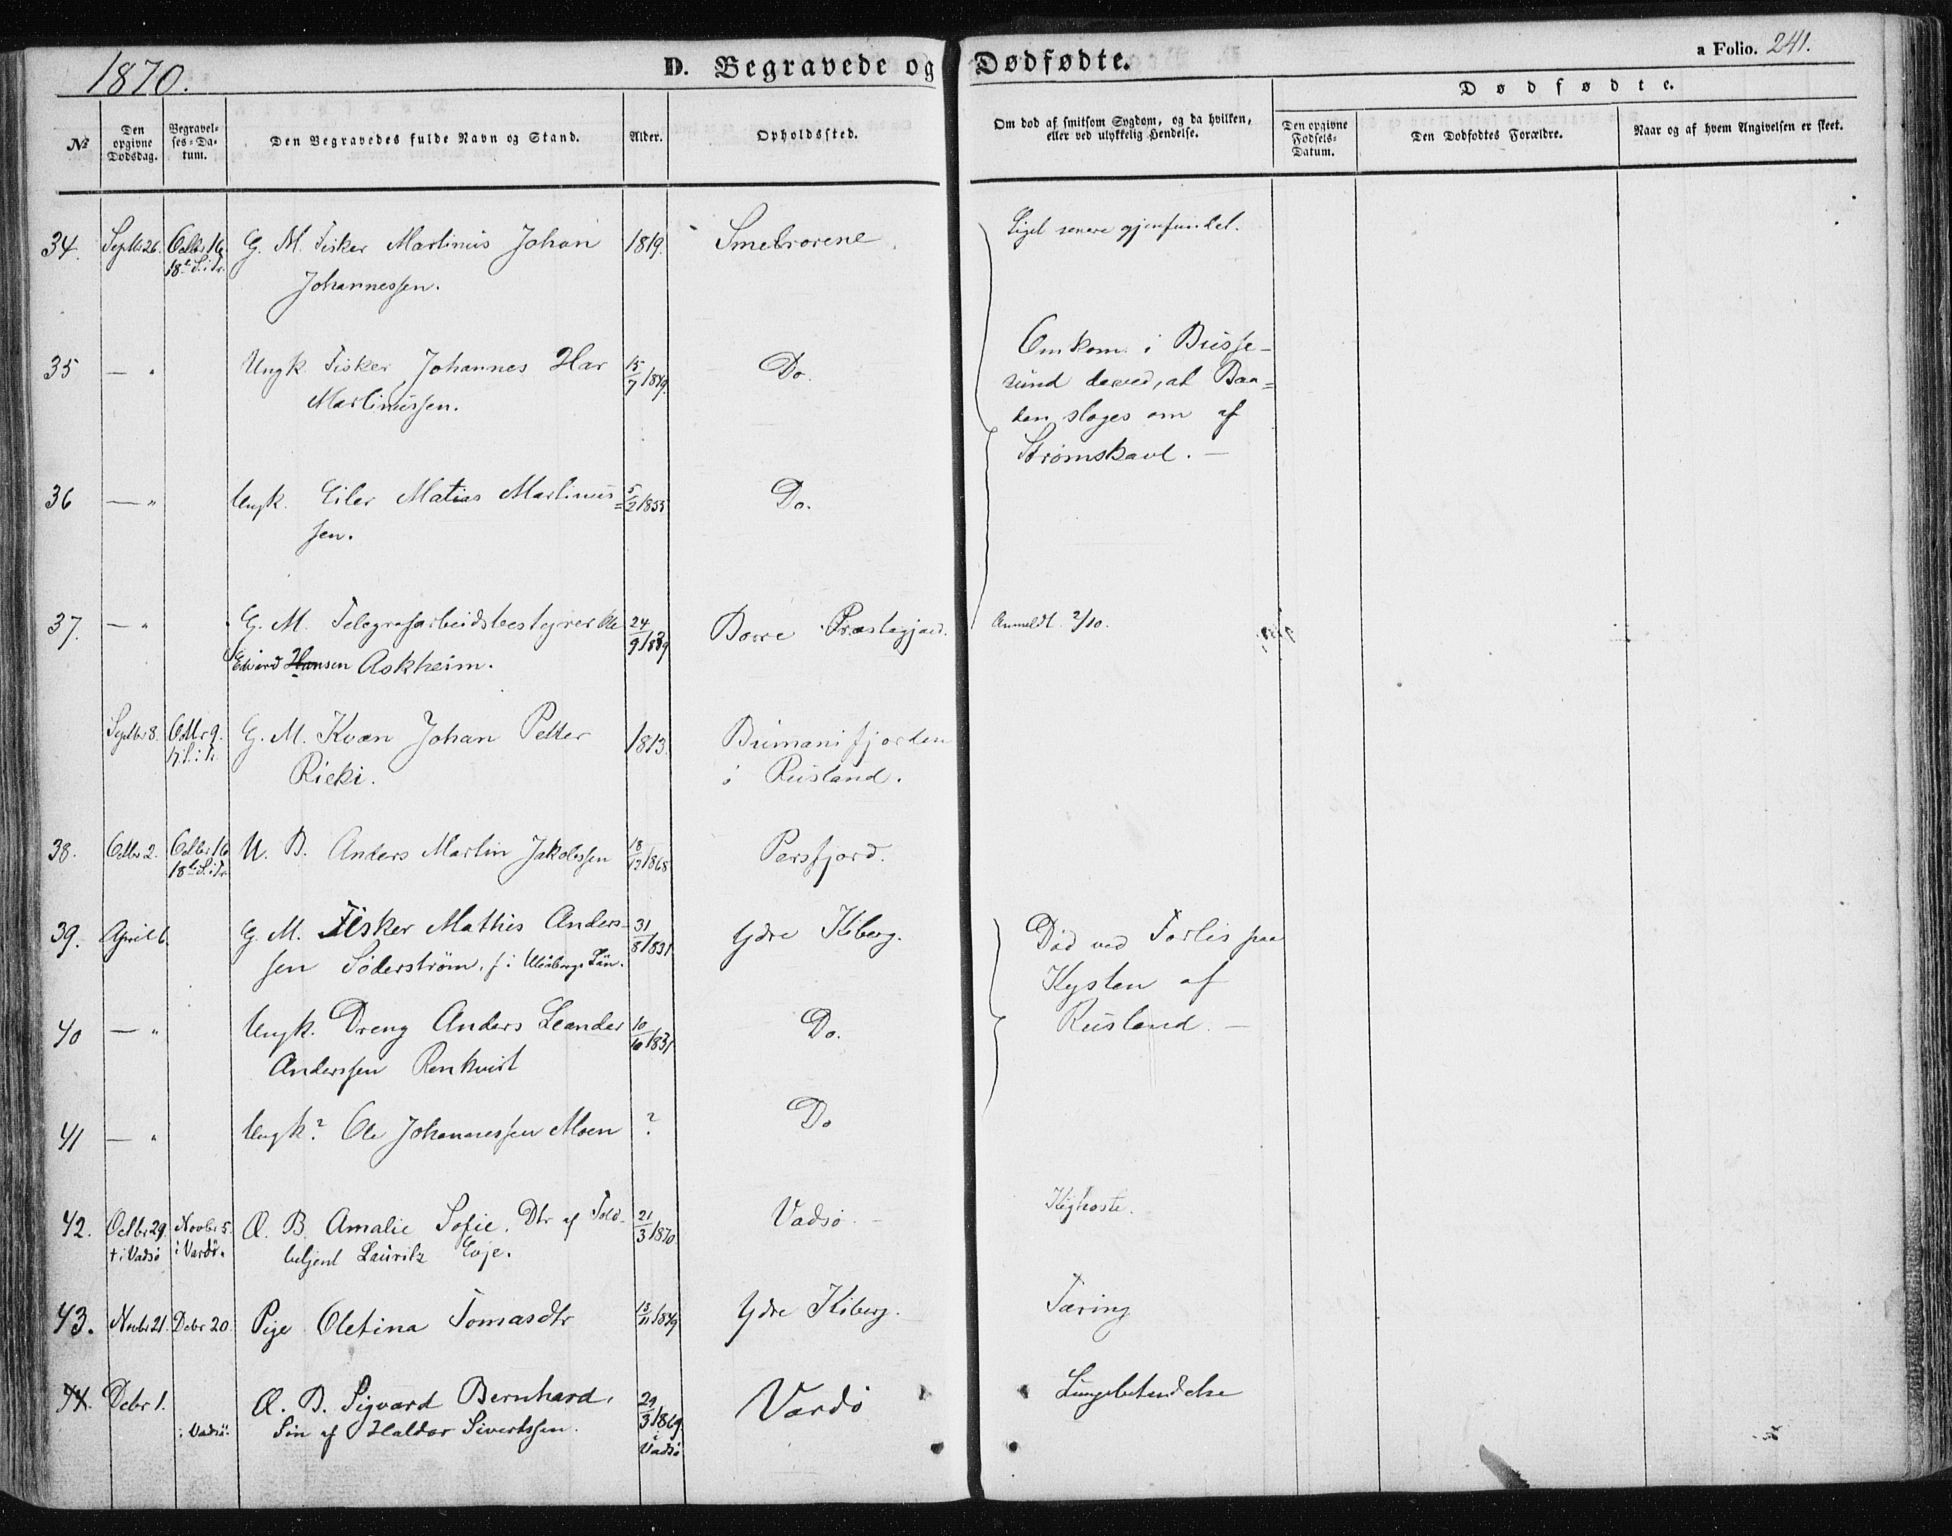 1870.
D. Begravede og Dødfødte.
a Folio. 241.
Nº
Den opgivne Dødsdag.
Begravelses-Datum.
Den Begravedes fulde Navn og Stand.
Alder.
Opholdssted.
Om død af smitsom Sygdom, og da hvilken, eller ved ulykkelig Hendelse.
Dødfødte.
Den opgivne Fødsels-Datum.
Den Dødfødtes Forældre.
Naar og af hvem Angivelsen er skeet.
34. Septbr 26. Octbr 16 G. M. Fisker Martinus Johan 1819. Smelrorene Liget senere gjenfundet.
18de S. i Tr.
Johannessen.
35 — " Ungk. Fisker Johannes Har 15/7 1849. Do. Omkom i Busse-
Martinussen. sund derved, at Baa=
den sloges om af
Strømskavl. —
36 — " Ungk. Eiler Matias Martinus= 5/2 1855 Do.
sen.
37. — " G. M. Telegrafarbeidsbestyrer Ole 24/9 Præstegjæld. Anmeldt 2/10.
Edvard Hansen Askheim.
Septbr 8. Octbr 9. G. M. Kvæn Johan Petter 1813 Bumanifjorden
Rieki. i Rusland.
38. Octbr 2. Octbr 16 U. B. Anders Martin Jakobssen 18/12 1868 Persfjord.
18de S. i Tr.
39. April 6. G. M. Fisker Mathis Anders- 31/8 1831 Ydre Kiberg. Død ved Forlis paa
sen Söderström. f. i Uleåborgs Län. Kysten af
40 — " Ungk. Dreng Anders Leander 10/10 1831 Do. Rusland. —
Anderssen Renkvist
41 — " Ungk? Ole Johannessen Moen ? Do
42. Octbr 29. Novbr 5. Œ. B. Amalie Sofie. Dtr af Told- 21/3 1870 Vadsø. Kighoste.
† i Vadsø i Vardö. betjent Lauritz Evje.
43. Novbr 21. Debr 20 Pige Oletina Tomasdtr 13/11 1849 Ydre Kiberg. Tæring
44. Debr 1. Œ. B. Sigvard Bernhard, 29/3 1869 Vardö Lungebetændelse
i Vadsö. Sön af Haldor Sivertssen. i Vadsö